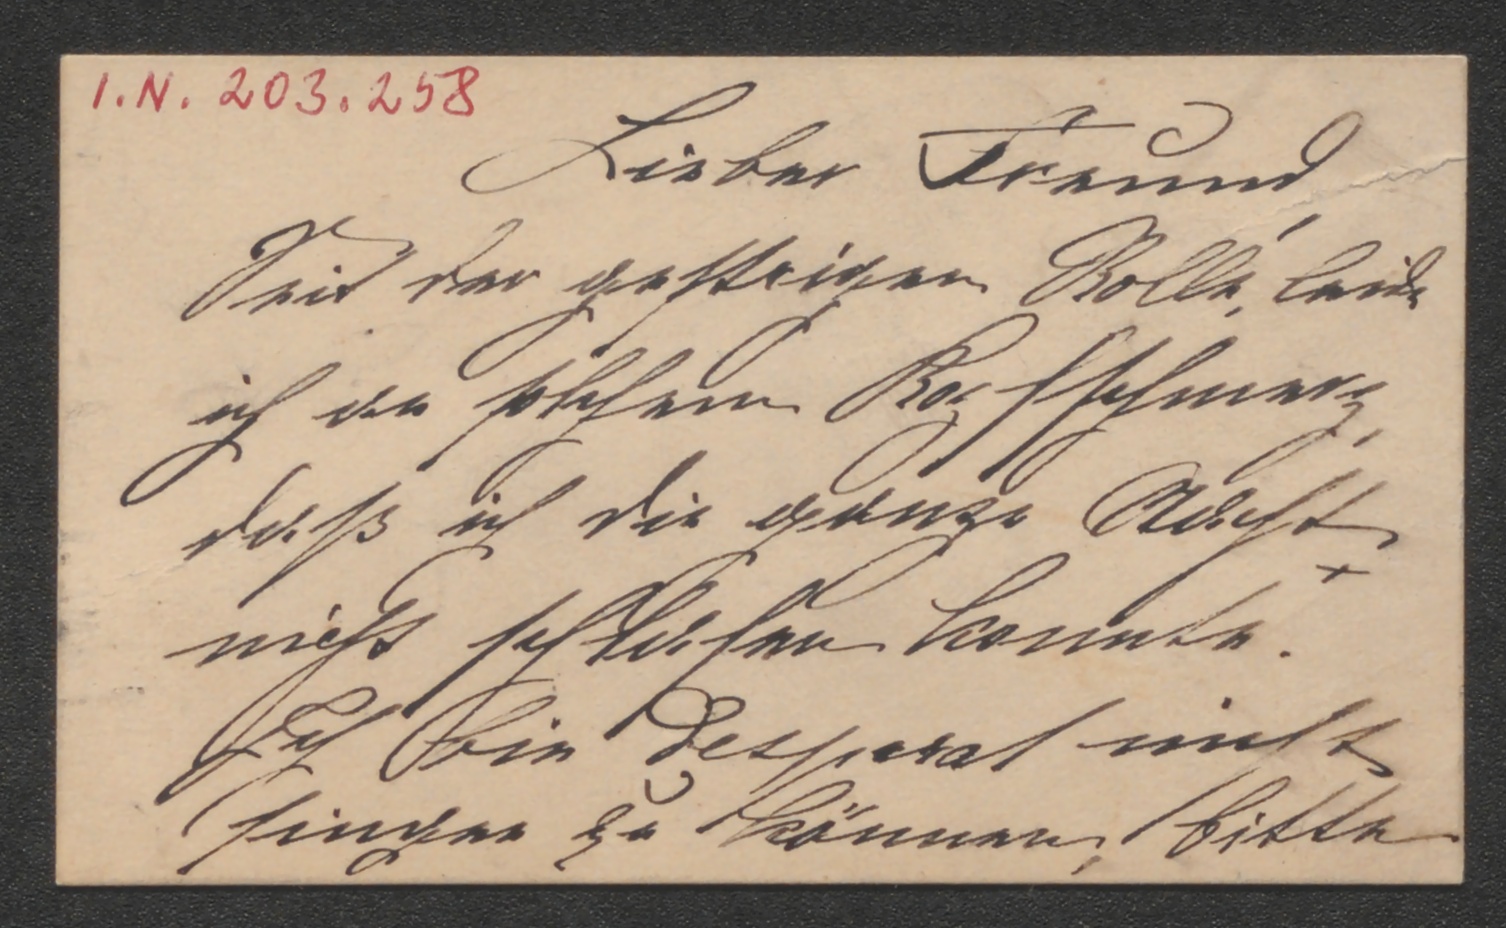 I.N. 203.258
Lieber Freund,
Seit der gestrigen Rolle, leide
ich an solchem Kopfschmerz,
daß ich die ganze Nacht
nicht schlafen konnte.
Ich bin desperat nicht
singen zu können, bitte